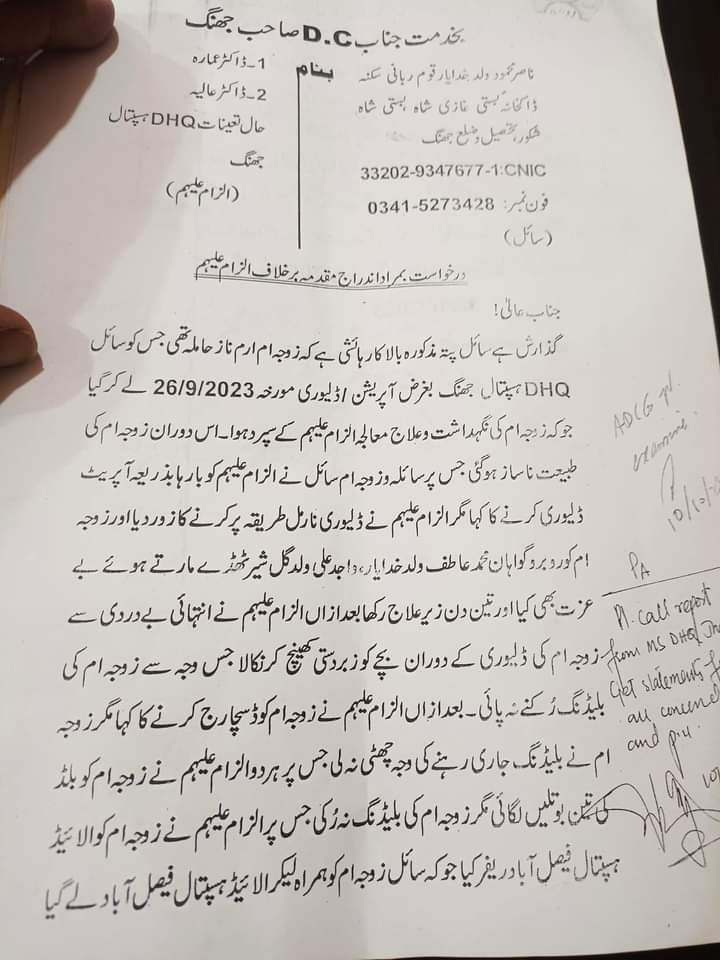 بخدمت جناب D.C صاحب جھنگ
ناصر محمود ولد خدایار قوم ربانی سکنہ
ڈاکخانہ بستی غازی شاہ بستی شاہ
شکور، تحصیل و ضلع جھنگ
33202-9347677-1:CNIC
فون نمبر: 0341-5273428
(سائل)
بنام
1۔ڈاکٹر عمارہ
2۔ڈاکٹر عالیہ
حال تعینات DHQ ہسپتال
جھنگ
(الزام علیہم)
درخواست بمراد اندراج مقدمہ برخلاف الزام علیہم
جناب عالیٰ!
گذارش ہے سائل پتہ مذکورہ بالا کا رہائشی ہے کہ زوجہ ام ارم ناز حاملہ تھی جس کو سائل
DHQ ہسپتال جھنگ بغرض آپریشن / ڈلیوری مورخہ 26/9/2023 لے کر گیا
جو کہ زوجہ ام کی نگہداشت و علاج معالجہ الزام علیہم کے سپرد ہوا۔ اس دوران زوجہ ام کی
طبیعت ناساز ہو گئی جس پر سائلہ و زوجہ ام سائل نے الزام علیہم کو بارہا بذریعہ آپریٹ
ڈلیوری کرنے کا کہا مگر الزام علیہم نے ڈلیوری نارمل طریقہ پر کرنے کا زور دیا اور زوجہ
ام کو روبرو گواہان محمد عاطف ولد خدایار، واجد علی ولد گل شیر ٹھڈے مارتے ہوئے بے
عزت بھی کیا اور تین دن زیر علاج رکھا بعد ازاں الزام علیہم نے انتہائی بے دردی سے
زوجہ ام کی ڈلیوری کے دوران بچے کو زبردستی کھینچ کر نکالا جس وجہ سے زوجہ ام کی
بلیڈنگ رُکنے نہ پائی۔ بعد ازاں الزام علیہم نے زوجہ ام کو ڈسچارج کرنے کا کہا مگر زوجہ
ام نے بلیڈنگ جاری رہنے کی وجہ چھٹی نہ لی جس پر ہر دو الزام علیہم نے زوجہ ام کو بلڈ
کی تین بوتلیں لگائی مگر زوجہ ام کی بلیڈنگ نہ رُکی جس پر الزام علیہم نے زوجہ ام کو الائیڈ
ہسپتال فیصل آباد ریفر کیا جو کہ سائل زوجہ ام کو ہمراہ لیکر الائیڈ ہسپتال فیصل آباد لے گیا
ADCG pl.
examine.
10/10/
PA
Pl. call report
from MS DHQ Jha
Get statements f
all concerned
and p.u.